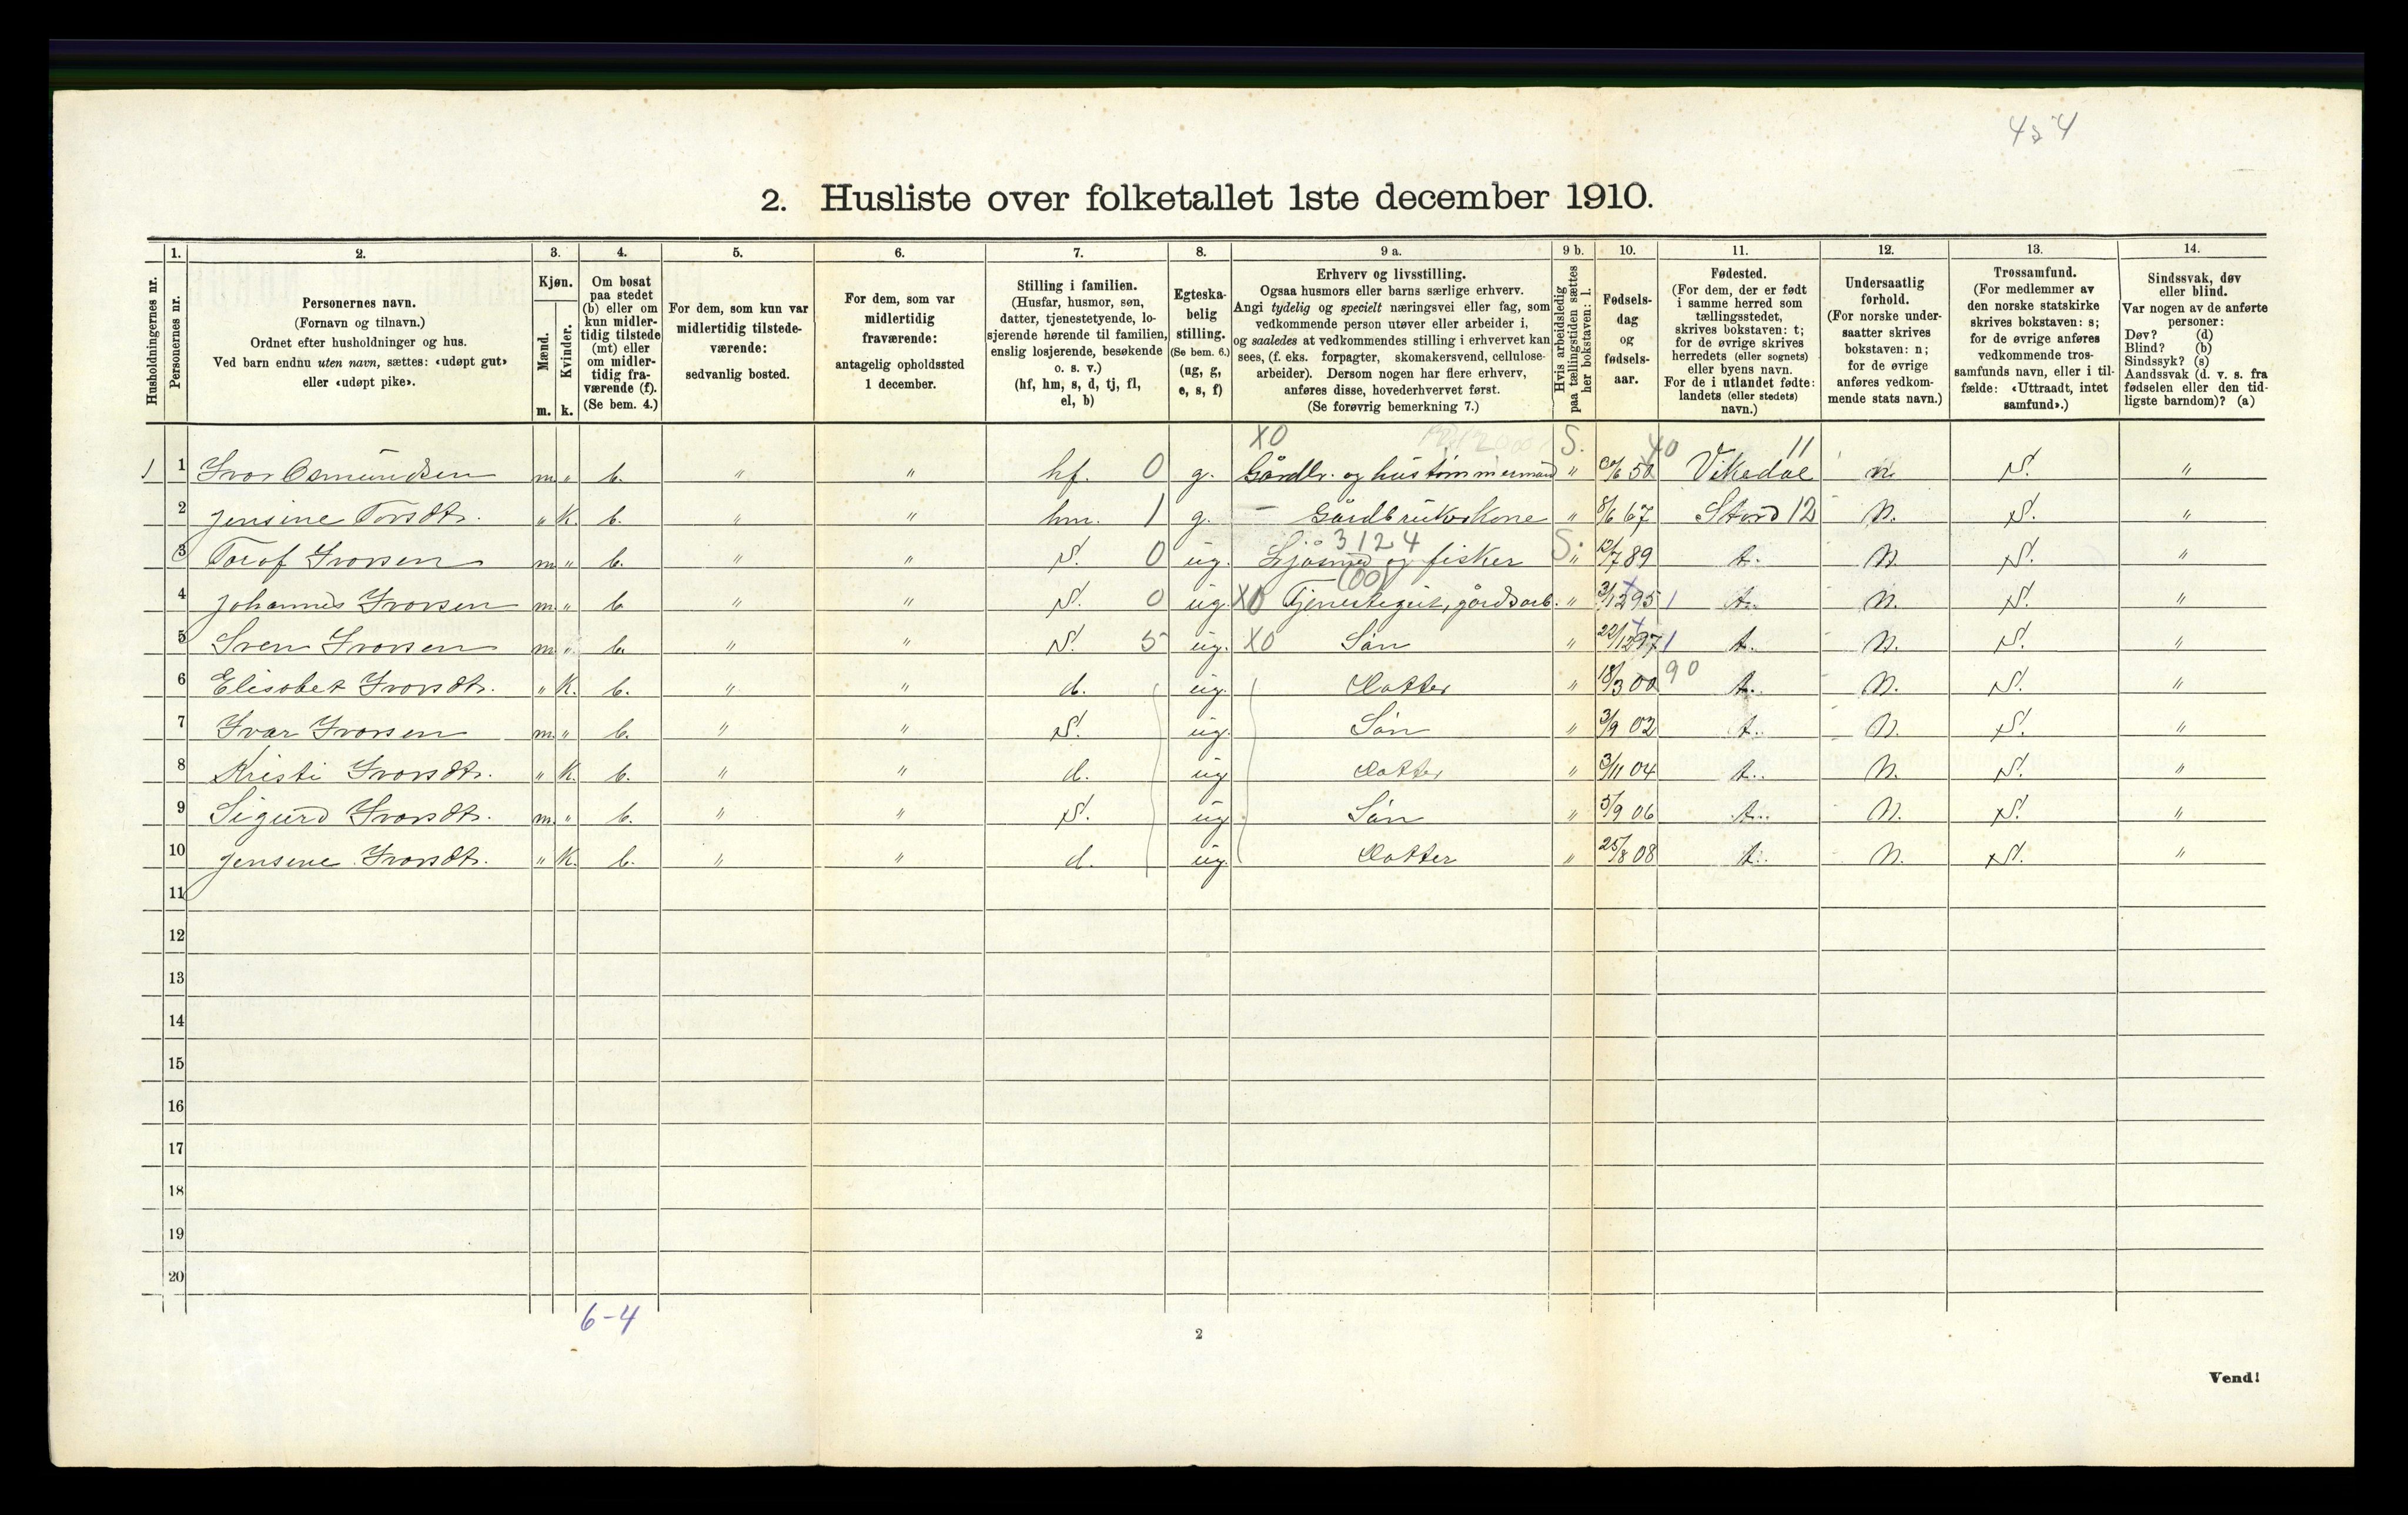 4 2 4
2. Husliste over folketallet 1ste december 1910.
Husholdningernes nr.
1.
Personernes nr.
2.
Personernes navn.
(Fornavn og tilnavn.)
Ordnet efter husholdninger og hus.
Ved barn endnu uten navn, sættes: «udøpt gut»
eller «udøpt pike».
3.
Kjøn.
Mænd.
Kvinder.
m. k.
4.
Om bosat
paa stedet
(b) eller om
kun midler-
tidig tilstede
(mt) eller
om midler-
tidig fra-
værende (f).
(Se bem. 4.)
5.
For dem, som kun var
midlertidig tilstede-
værende:
sedvanlig bosted.
6.
For dem, som var
midlertidig
fraværende:
antagelig opholdssted
1 december.
7.
Stilling i familien.
(Husfar, husmor, søn,
datter, tjenestetyende, lo-
sjerende hørende til familien,
enslig losjerende, besøkende
o. s. v.)
(hf, hm, s, d, tj, fl,
el, b)
8.
Egteska-
belig
stilling.
(Se bem. 6.)
(ug, g,
e, s, f)
9 a.
Erhverv og livsstilling.
Ogsaa husmors eller barns særlige erhverv.
Angi tydelig og specielt næringsvei eller fag, som
vedkommende person utøver eller arbeider i,
og saaledes at vedkommendes stilling i erhvervet kan
sees, (f. eks. forpagter, skomakersvend, cellulose-
arbeider). Dersom nogen har flere erhverv,
anføres disse, hovederhvervet først.
(Se forøvrig bemerkning 7.)
9 b.
Hvis arbeidsledig
paa tællingstiden sættes
her bokstaven: l.
10.
Fødsels-
dag
og
fødsels-
aar.
11.
Fødested.
(For dem, der er født
i samme herred som
tællingsstedet,
skrives bokstaven: t;
for de øvrige skrives
herredets (eller sognets)
eller byens navn.
For de i utlandet fødte:
landets (eller stedets)
navn.)
12.
Undersaatlig
forhold.
(For norske under-
saatter skrives
bokstaven: n;
for de øvrige
anføres vedkom-
mende stats navn.)
13.
Trossamfund.
(For medlemmer av
den norske statskirke
skrives bokstaven: s;
for de øvrige anføres
vedkommende tros-
samfunds navn, eller i til-
fælde: «Uttraadt, intet
samfund».)
14.
Sindssvak, døv
eller blind.
Var nogen av de anførte
personer:
Døv? (d)
Blind? (b)
Sindssyk? (s)
Aandssvak (d. v. s. fra
fødselen eller den tid-
ligste barndom)? (a)
X0 S. 40 11
1 1 Ivar Osmundsen m. " b. " " hf. 0 g. Gårdbr. og hustømmermand " 50 Vikedal n. S. "
2 Jensine Torsdtr. " K. b. " " hm. 1 g. — Gårdbrukskone " 8/6 67 Stord 12 N. S. "
3124 S.
3 Torof Ivarsen m. " b. " " S. 0 ug. Sjømand og fisker " 12/7 89 t. N. S. "
(00)
4 Johannes Ivarsen m. " b " " S. 0 ug. X0 Tjenestegut, gårdsarb. " 3/12 95 1 t. N. S. "
5 Sven Ivarsen m. " b. " " S. 5 ug. X0 Søn " 22/12 97 1 t. N. S. "
6 Elisabet Ivarsdtr. " K. b. " " d. ug. Datter " 18/3 00 90 t. N. S. "
7 Ivar Ivarsen m. " b. " " S. ug. Søn " 3/9 02 t. N. S. "
8 Kristi Ivarsdtr. " K. b. " " d. ug Datter " 3/11 04 t. N. S. "
9 Sigurd Ivarsdtr. m. " b. " " S. ug Søn " 5/9 06 t. N. S. "
10 Jensine Ivarsdtr. " K. b. " " d. ug. Datter " 25/8 08 t. N. S. "
11
12
13
14
15
16
17
18
19
20
6-4
2
Vend!